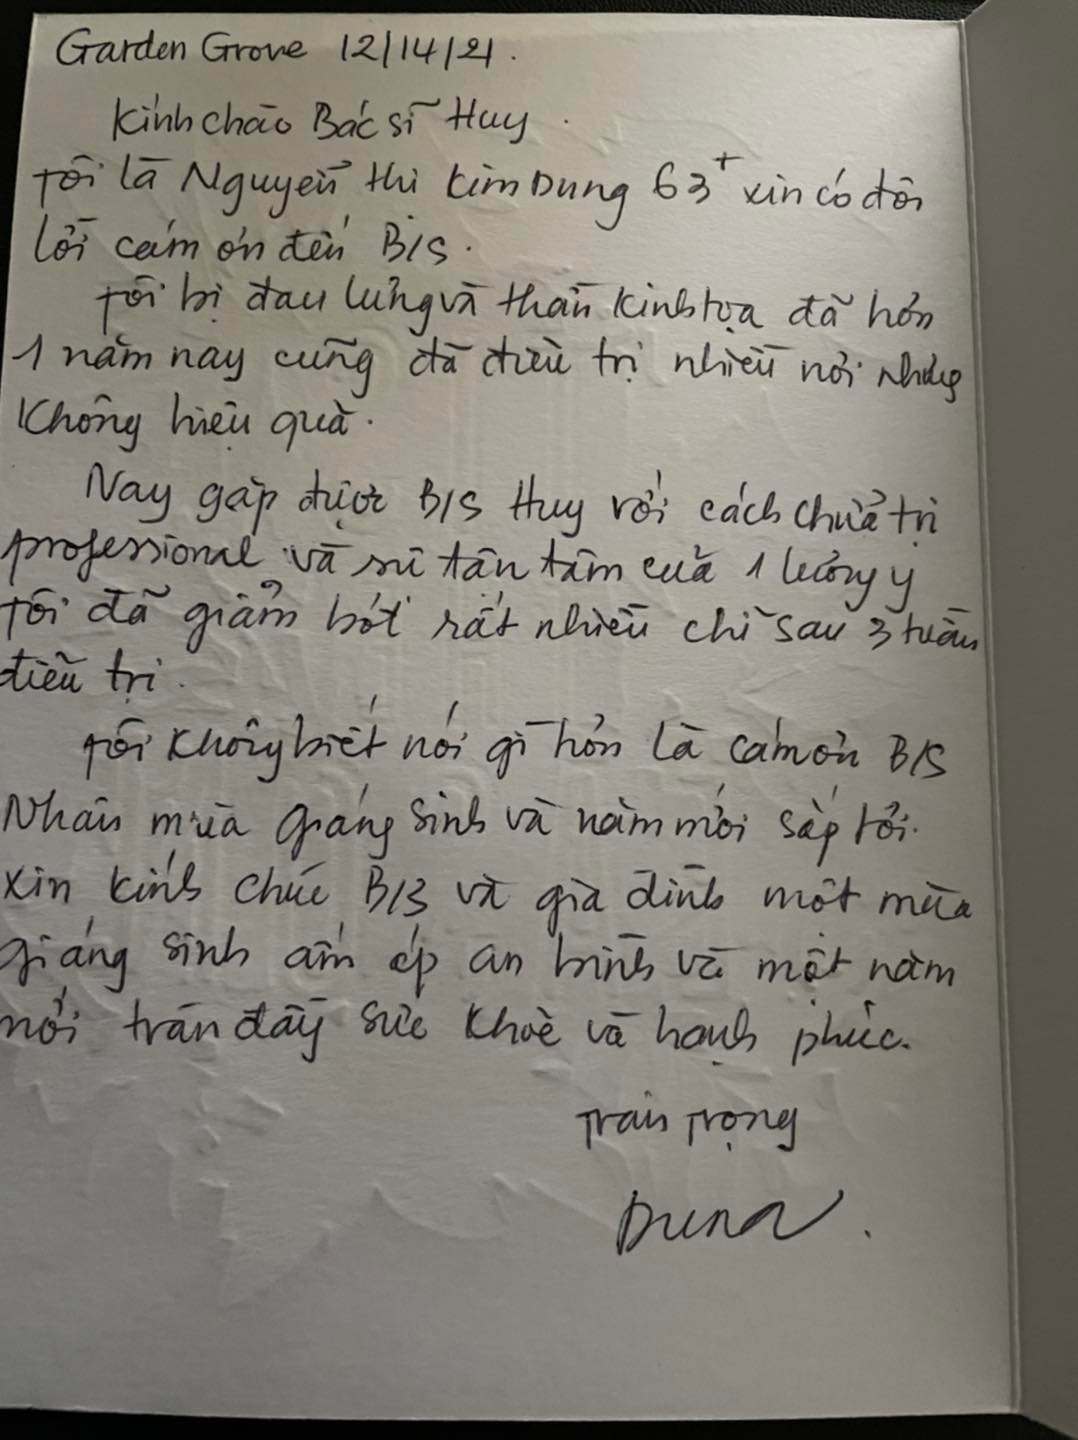 Garden Grove 12/14/21.
Kính chào Bác sĩ Huy.
Tôi là Nguyễn thi Kim Dung 63+ xin có đôi
lời cám ơn đến B/S.
Tôi bị đau lưng và thần kinh tọa đã hơn
1 năm nay cũng đã điều trị nhiều nơi nhưng
không hiệu quả.
Nay gặp được B/S Huy với cách chữa trị
professional và sự tận tâm của 1 lương y
Tôi đã giảm bớt rất nhiều chỉ sau 3 tuần
điều trị.
Tôi không biết nói gì hơn là cám ơn B/S
Nhân mùa giáng sinh và năm mới sắp tới.
Xin kính chúc B/S và gia đình một mùa
giáng sinh ấm áp an bình và một năm
mới tràn đầy sức khoẻ và hạnh phúc.
Trân Trọng
Dung.